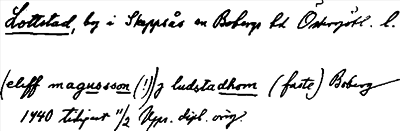 Lottstad, by i Skeppsås sn Bobergs hd Östergötl. l.
(cliff magusson (!)) j ludstadhom (faste) Boberg
1440 tihjart 11/2 Upps. dipl. orig.